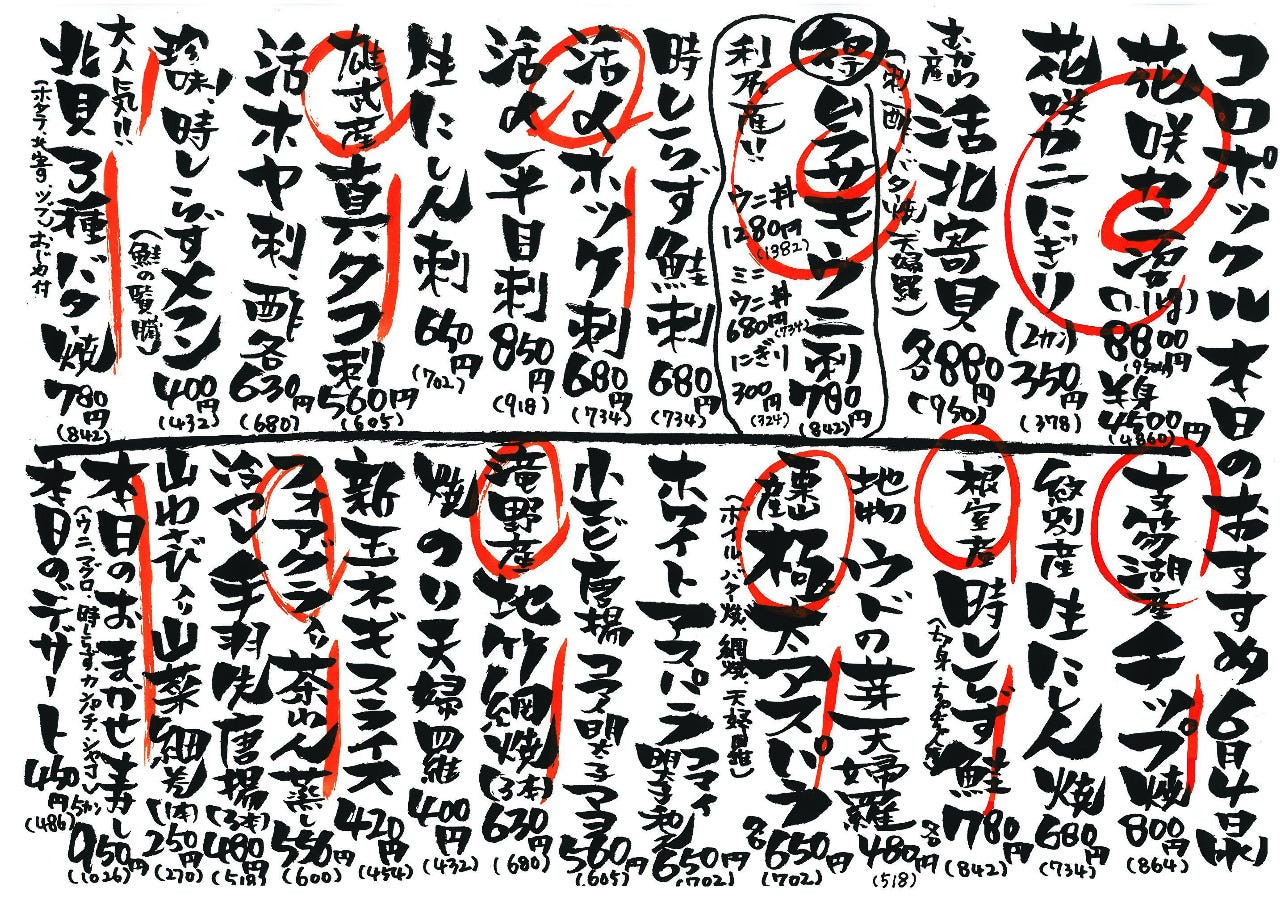 コロポックル 本日のおすすめ 6月4日
花咲カニ 湯(1.1kg) 8800円(9504) 半身4500円(4860)
花咲カニにぎり(2カン) 350円(378)
おがわ産 活北寄貝 各880円(950)
(刺、酢、バタ焼、天婦羅)
得 ムラサキウニ刺 780円(842)
利尻産!! ウニ丼 1280円(1382) ミニウニ丼 680円(734) にぎり 300円(324)
時しらず鮭刺 680円(734)
活〆ホッケ刺 680円(734)
活〆平目刺 850円(918)
生にしん刺 650円(702)
雄武産 真ダコ刺 560円(605)
活ホヤ刺、酢 各630円(680)
珍味、時しらずメフン 400円(432)
(鮭の腎臓)
大人気!!
北貝3種バタ焼 780円(842)
(ホタテ、北寄、ツブ)
支笏湖産 チップ焼 800円(864)
紋別産 生にしん焼 680円(734)
根室産 時しらず鮭 各780円(842)
地物 ウドの芽天婦羅 480円(518)
栗山産 極太アスパラ 各650円(702)
(ボイル、バタ焼、網焼、天婦羅)
ホワイトアスパラコマイ明太子和え 650円(702)
小エビ唐揚コマイ明太子マヨ 560円(605)
滝野産 地竹網焼(3本) 630円(680)
焼のり天婦羅 400円(432)
新玉ネギスライス 420円(454)
フォアグラ入り茶わん蒸し 556円(600)
冷やし手羽先唐揚(3本) 480円(518)
山わさび入り山菜細巻(1本) 250円(270)
本日のおまかせ寿し 950円(1026)
(ウニ、マグロ、時しらず、カンパチ、シャコ) 5カン
本日のデザート 450円(486)